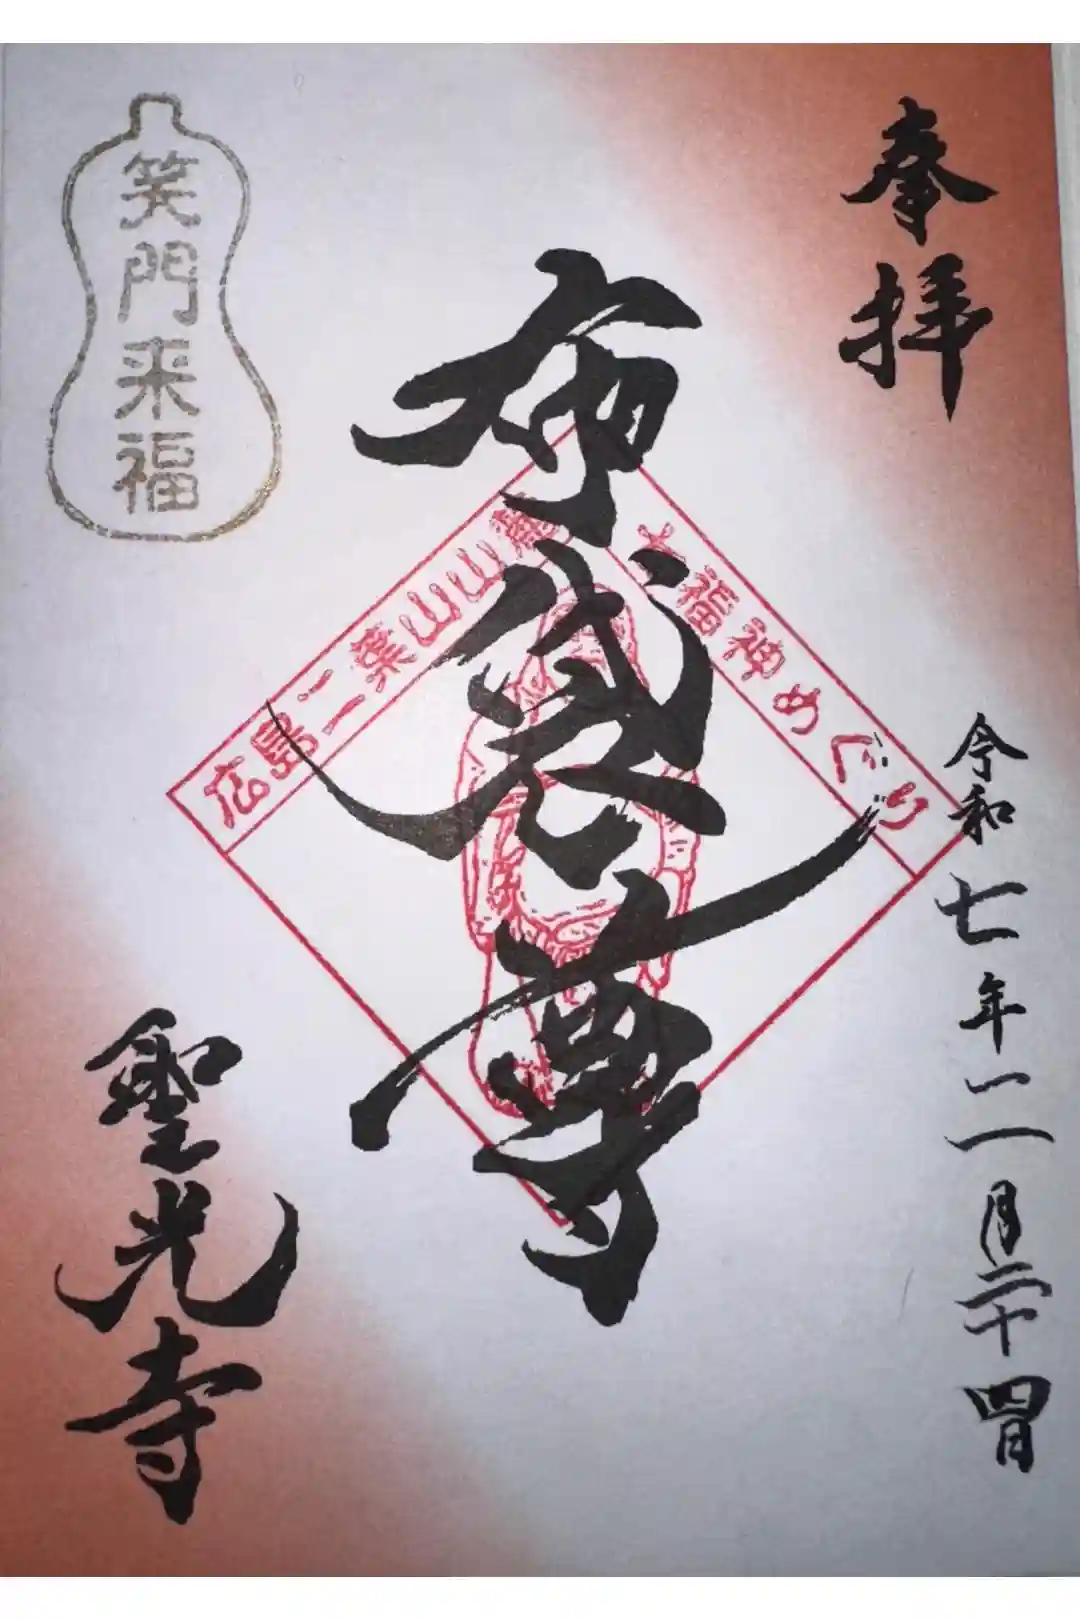 奉拝
令和七年二月二十四日
布袋尊
広島二葉山山麓
七福神めぐり
笑門来福
聖光寺